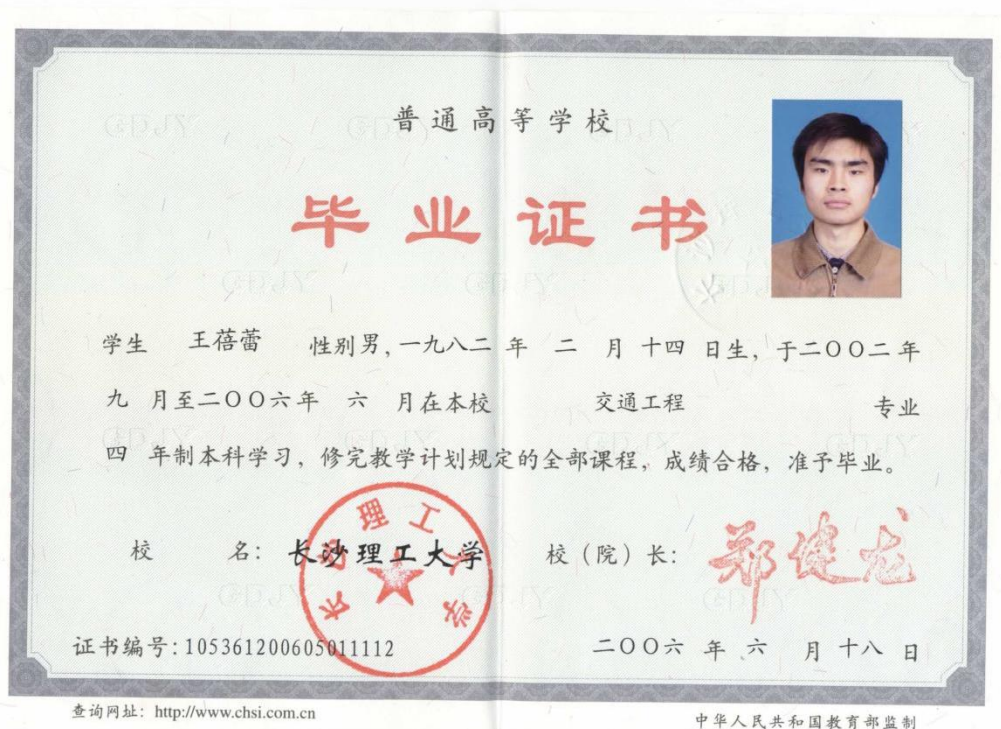 普通高等学校
毕业证书
学生 王蓓蕾 性别男，一九八二 年 二 月 十四 日生，于二〇〇二年
九 月至二〇〇六年 六 月在本校 交通工程 专业
四 年制本科学习，修完教学计划规定的全部课程，成绩合格，准予毕业。
校 名：长沙理工大学 校（院）长：郑健龙
长沙理工大学
证书编号：105361200605011112 二〇〇六 年 六 月 十八 日
查询网址：http://www.chsi.com.cn 中华人民共和国教育部监制